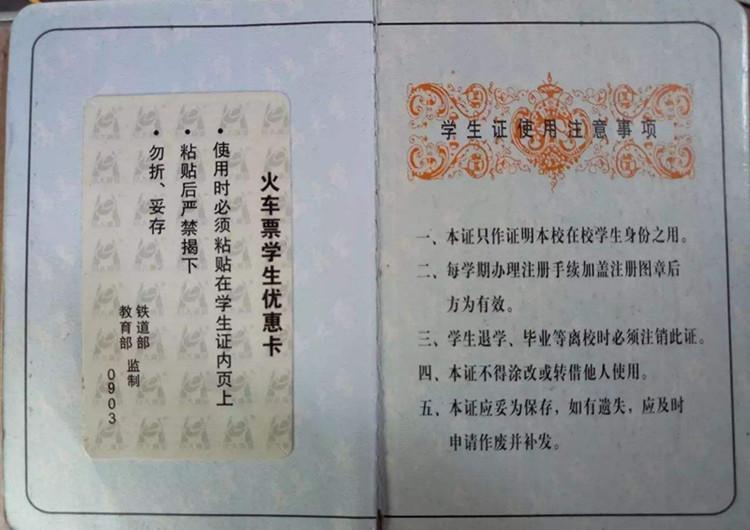 火车票学生优惠卡
• 使用时必须粘贴在学生证内页上
• 粘贴后严禁揭下
• 勿折、妥存
铁道部
教育部 监制
0903
学生证使用注意事项
一、本证只作证明本校在校学生身份之用。
二、每学期办理注册手续加盖注册图章后
方为有效。
三、学生退学、毕业等离校时必须注销此证。
四、本证不得涂改或转借他人使用。
五、本证应妥为保存，如有遗失，应及时
申请作废并补发。